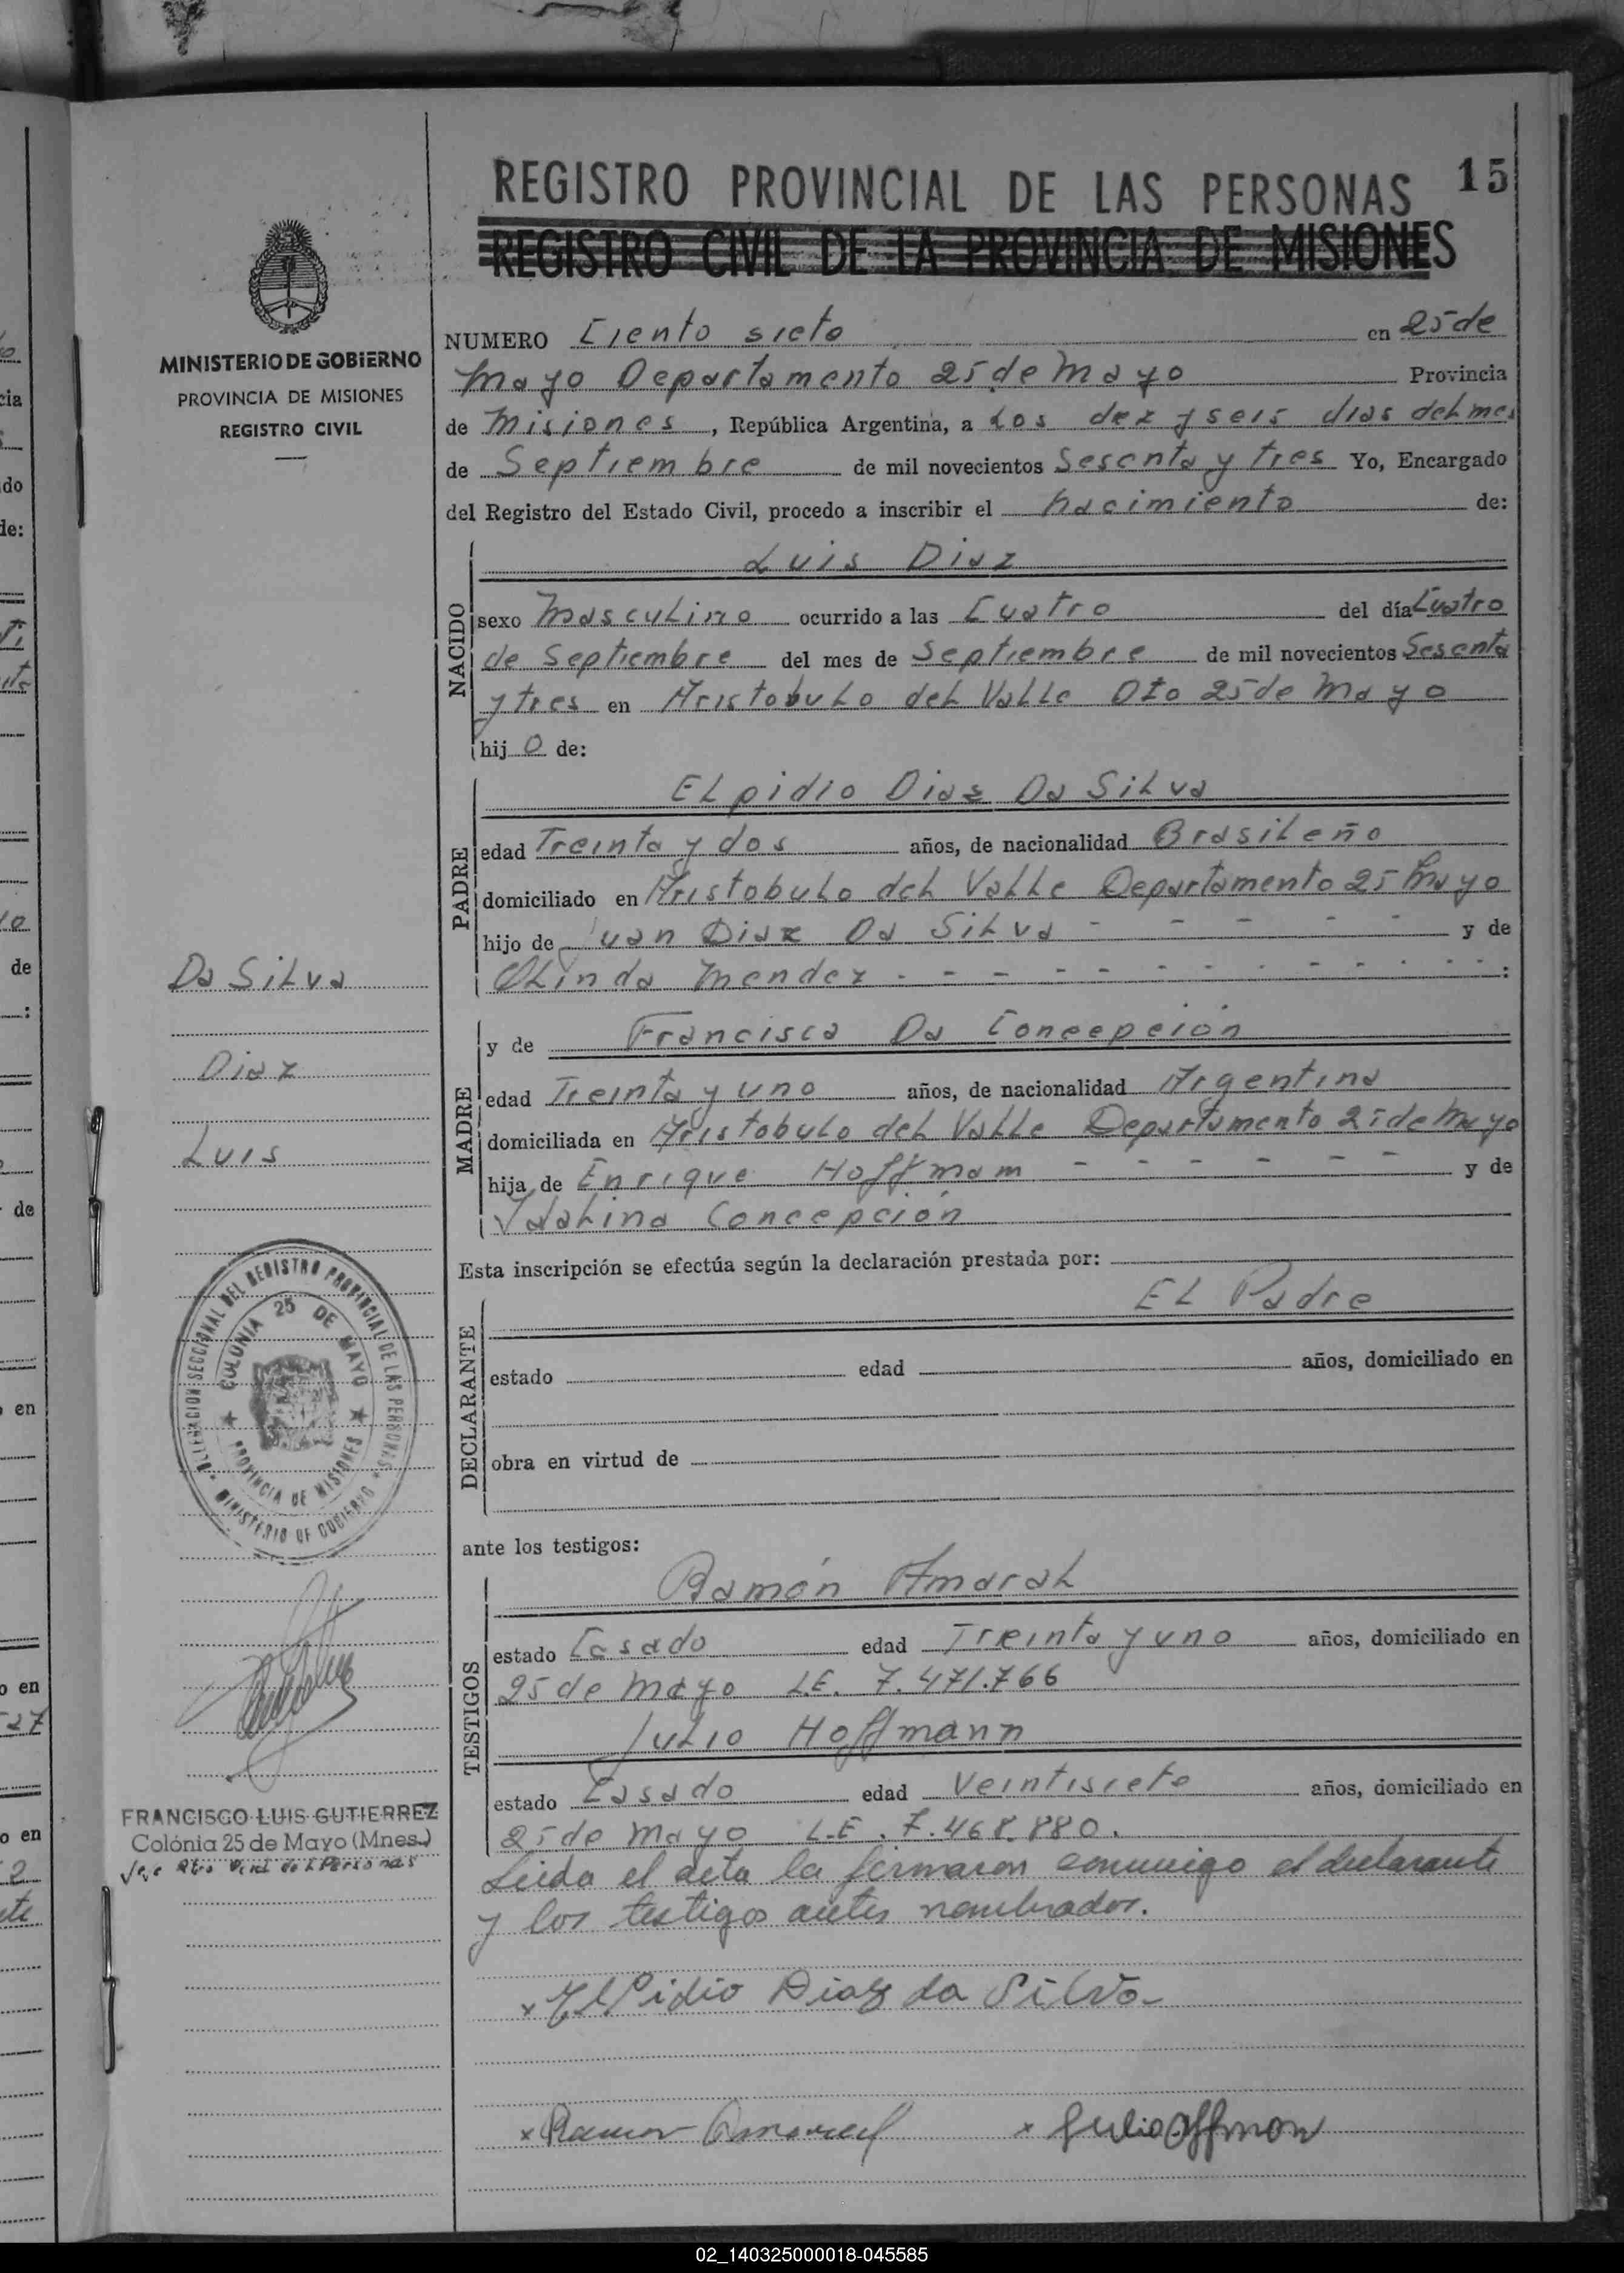 REGISTRO PROVINCIAL DE LAS PERSONAS 15
REGISTRO CIVIL DE LA PROVINCIA DE MISIONES
MINISTERIO DE GOBIERNO
PROVINCIA DE MISIONES
REGISTRO CIVIL
NUMERO Ciento siete en 25 de
Mayo Departamento 25 de Mayo Provincia
de Misiones, República Argentina, a Los dez y seis dias del mes
de Septiembre de mil novecientos Sesenta y tres Yo, Encargado
del Registro del Estado Civil, procedo a inscribir el nacimiento de:
NACIDO
Luis Diaz
sexo Masculino ocurrido a las Cuatro del día Cuatro
de Septiembre del mes de Septiembre de mil novecientos Sesenta
y tres en Aristobulo del Valle Dto 25 de Mayo
hijo de:
PADRE
ELpidio Diaz Da Silva
edad Treinta y dos años, de nacionalidad Brasileño
domiciliado en Aristobulo del Valle Departamento 25 Mayo
hijo de Juan Diaz Da Silva - - - - - y de
Olinda Mendez - - - - - - - - - - :
MADRE
y de Francisca Da Concepción
edad Treinta y uno años, de nacionalidad Argentina
domiciliada en Aristobulo del Valle Departamento 25 de Mayo
hija de Enrique Hoffmam - - - - - - y de
Concepción
Esta inscripción se efectúa según la declaración prestada por:
DECLARANTE
EL Padre
estado edad años, domiciliado en
obra en virtud de
ante los testigos:
TESTIGOS
Ramón Amaral
estado Casado edad Treinta y uno años, domiciliado en
25 de Mayo L.E. 7.471.766
Julio Hoffmann
estado Casado edad Veintisiete años, domiciliado en
25 de Mayo L.E. 7.468.880.
Leida el acta la firmaron conmigo el declarante
y los testigos antes nombrados.
x Elpidio Diaz da Silva
x Ramon Amaral x Julio Offmon
Da Silva
Diaz
Luis
DELEGACION SECCIONAL DEL REGISTRO PROVINCIAL DE LAS PERSONAS
MINISTERIO DE GOBIERNO
COLONIA 25 DE MAYO
PROVINCIA DE MISIONES
FRANCISCO LUIS GUTIERREZ
Colónia 25 de Mayo (Mnes.)
Jefe Rtro Vincl de l Personas
02_140325000018-045585